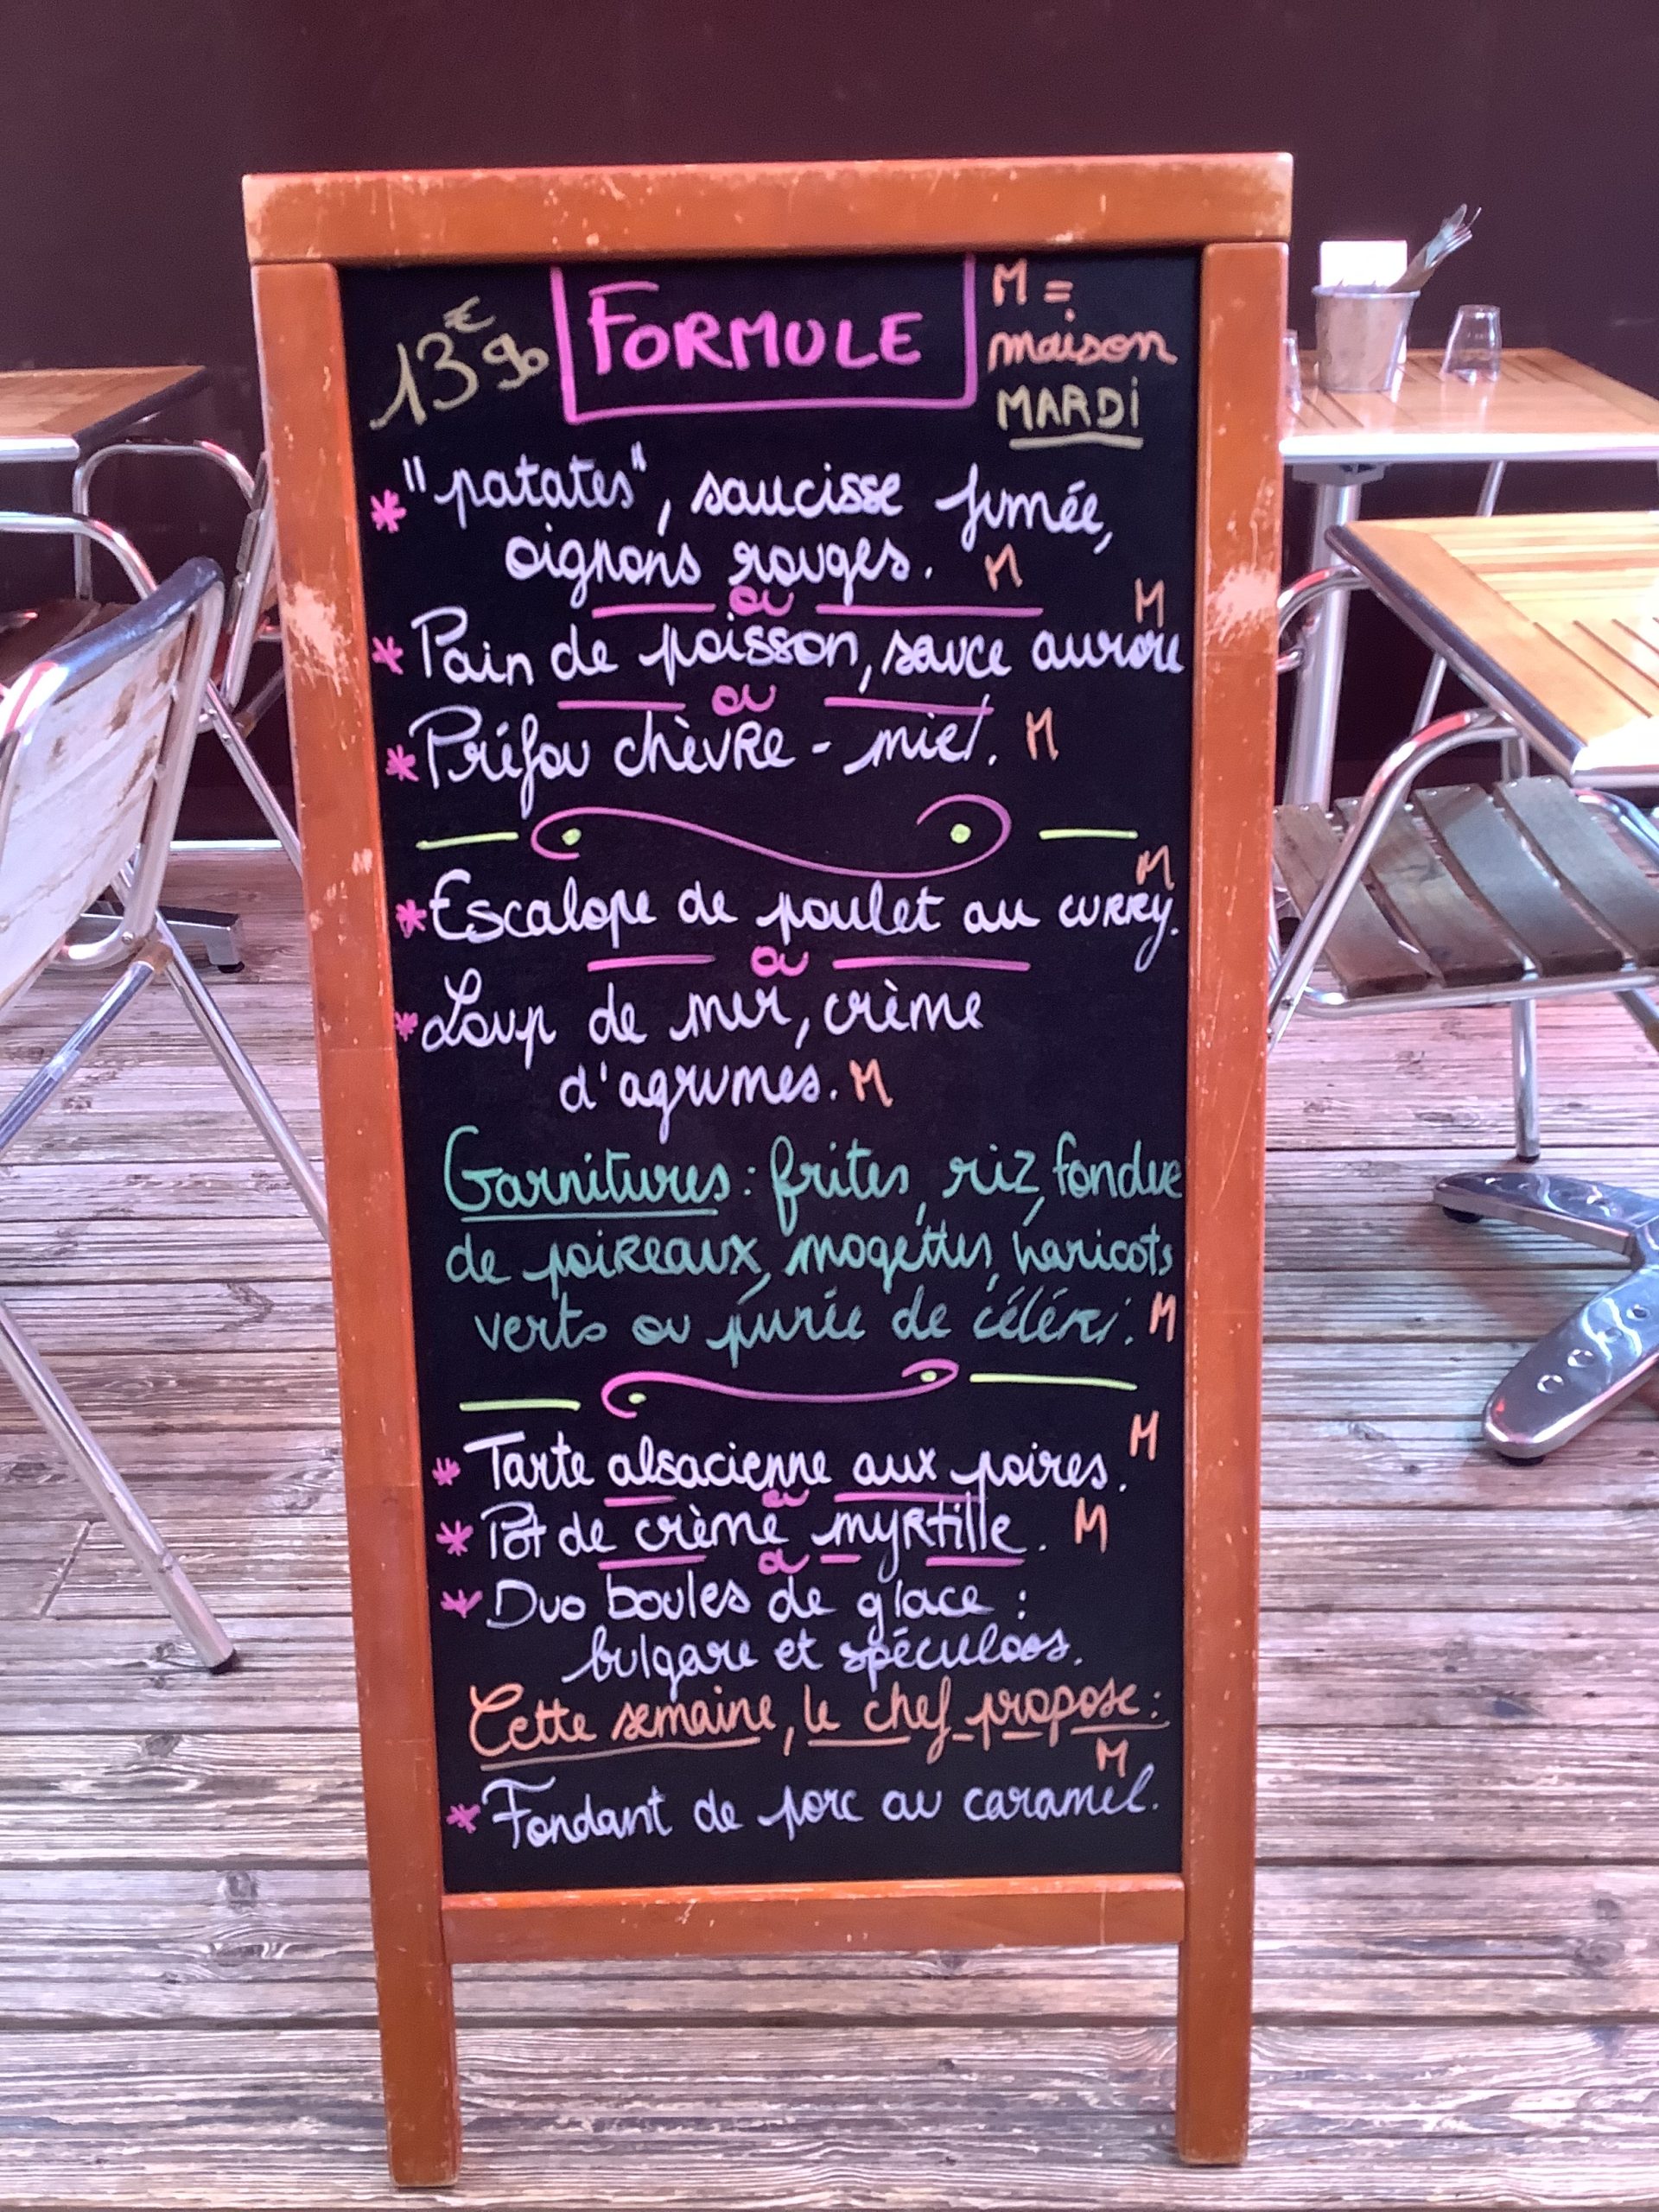 13€90 FORMULE M =
maison
MARDI
* "patates", saucisse fumée,
oignons rouges. M
ou
* Pain de poisson, sauce aurore M
ou
* Préfou chèvre - miel. M
* Escalope de poulet au curry. M
ou
* Loup de mer, crème
d'agrumes. M
Garnitures : frites, riz, fondue
de poireaux, mogettes, haricots
verts ou purée de céléri. M
* Tarte alsacienne aux poires. M
ou
* Pot de crème myrtille. M
ou
* Duo boules de glace :
bulgare et spéculoos.
Cette semaine, le chef propose :
* Fondant de porc au caramel. M